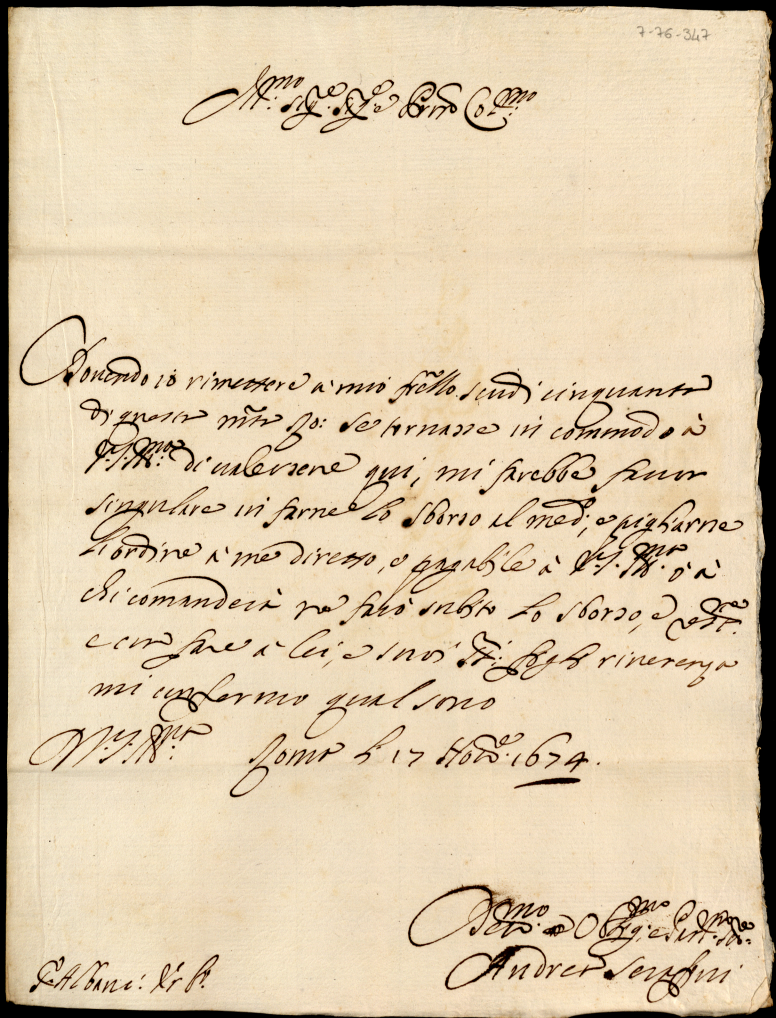 7-76-347
Ill.mo Sig.re Sig.re e P̃rõn Col.mo
Dovendo io rimettere à mio fr̃ello scudi cinquanta
di questa m̃ta Ro: se tornasse in commodo à
V.S. Ill.ma di valersene qui, mi farebbe favor
singulare in farne lo sborso al med.o, e pigliarne
l'ordine à me diretto, e pagabile à V.S. Ill.ma ò à
chi comanderà ne farò subito lo sborso, e
e con fare à lei, e suoi SS.ri figli riverenza
mi confermo qual sono
D V.S. Ill.ma Roma li 17 Nov.re 1674.
Dev.mo e Oblig.mo Ser.re
Andrea Serafini